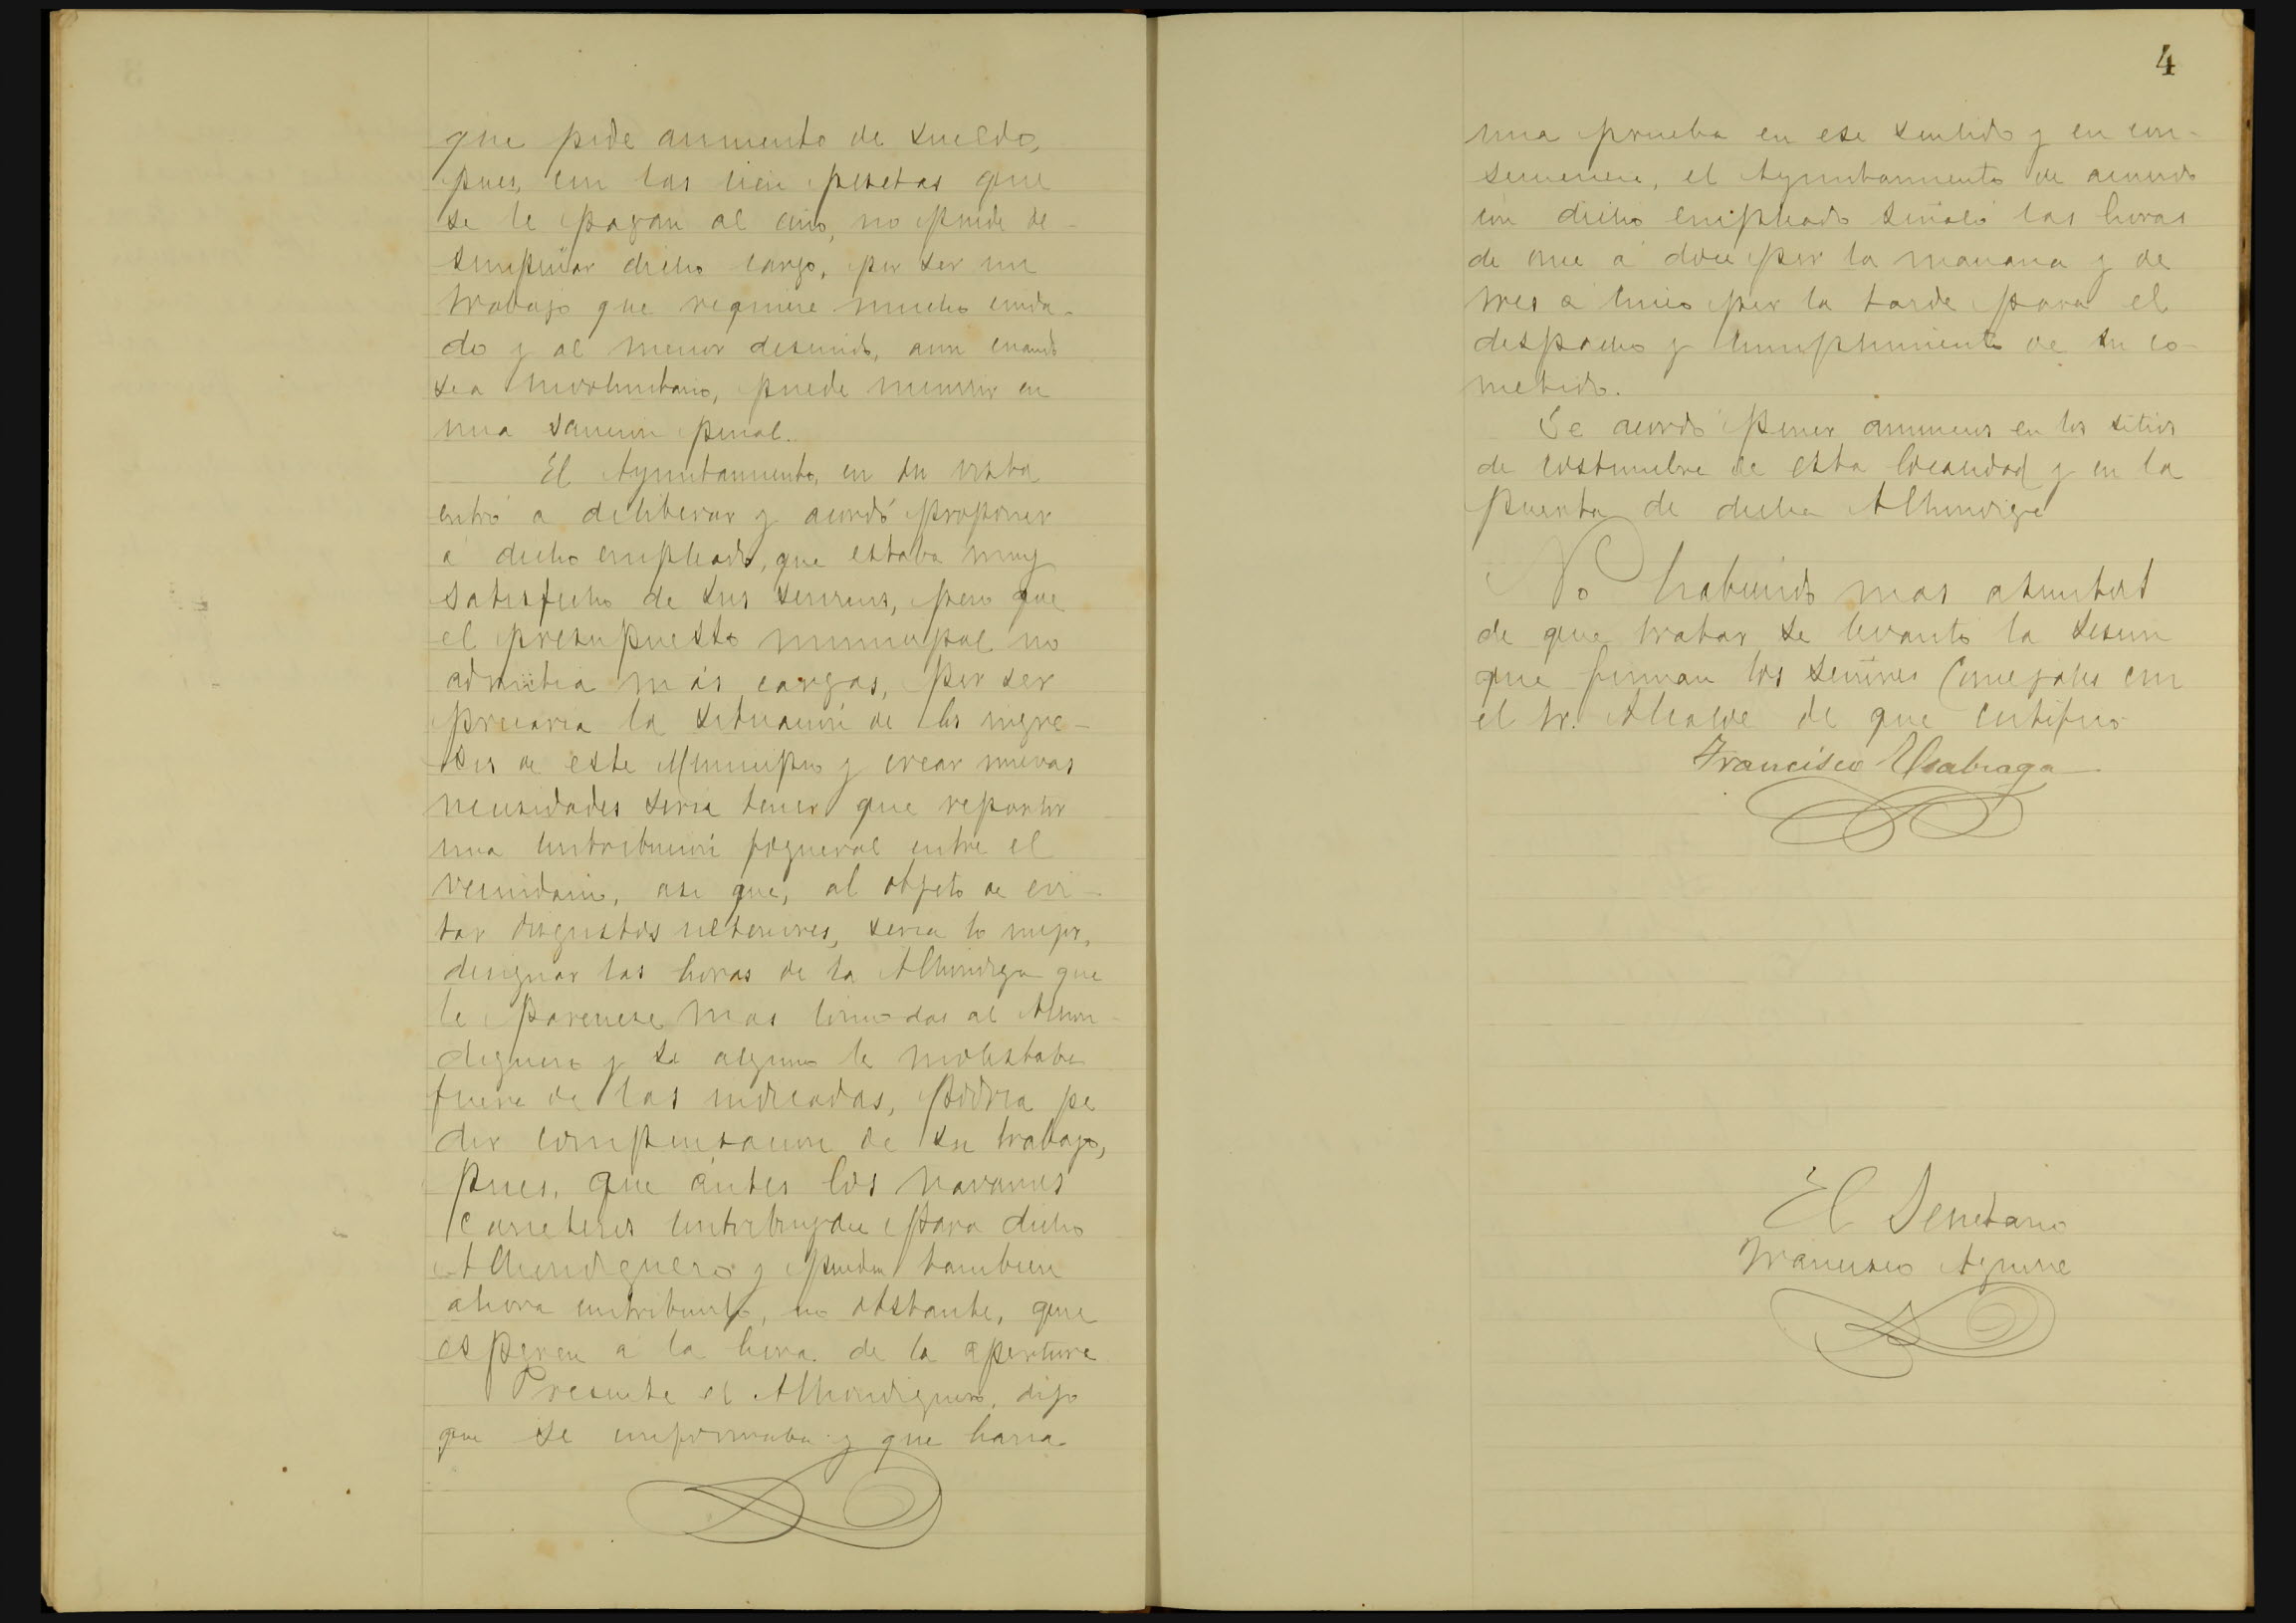 que pide aumento de sueldo,
pues, con las cien pesetas que
se le pagan al año, no puede de-
sempeñar dicho cargo, por ser un
trabajo que requiere mucho cuida-
do y al menor descuido, aun cuando
sea involuntario, puede incurrir en
una sancion penal.
El Ayuntamiento, en su vista
entró a deliberar y acordó proponer
a dicho empleado, que estaba muy
satisfecho de sus servicios, pero que
el presupuesto municipal no
admitia más cargas, por ser
precaria la situación de los ingre-
sos de este Municipio y crear nuevas
necesidades seria tener que repartir
una contribución general entre el
vecindario, asi que, al objeto de evi-
tar disgustos ulteriores, seria lo mejor,
designar las horas de la Alhondiga que
le pareciese mas comodas al Alhon-
diguero y si alguno le molestaba
fuera de las indicadas, podria pe
dir compensacion de su trabajo,
pues, que ántes los navarros
carreteros contribuyan para dicho
Alhondiguero y pueden tambien
ahora contribuirlo, no obstante, que
esperen a la hora de la apertura
Presente el Alhondiguero, dijo
que se conformaba y que haria
4
una prueba en ese sentido y en con-
secuencia, el Ayuntamiento de acuerdo
con dicho empleado señaló las horas
de once a doce por la manana y de
tres a cinco por la tarde para el
despacho y cumplimiento de su co-
metido.
Se acordó poner anuncios en los sitios
de costumbre de esta localidad y en la
puerta de dicha Alhondiga
No habiendo mas asuntos
de que tratar se levantó la sesion
que firman los señores Concejales con
el Sr. Alcalde de que certifico
Francisco Usabiaga
El Secretario
Francisco Aguirre